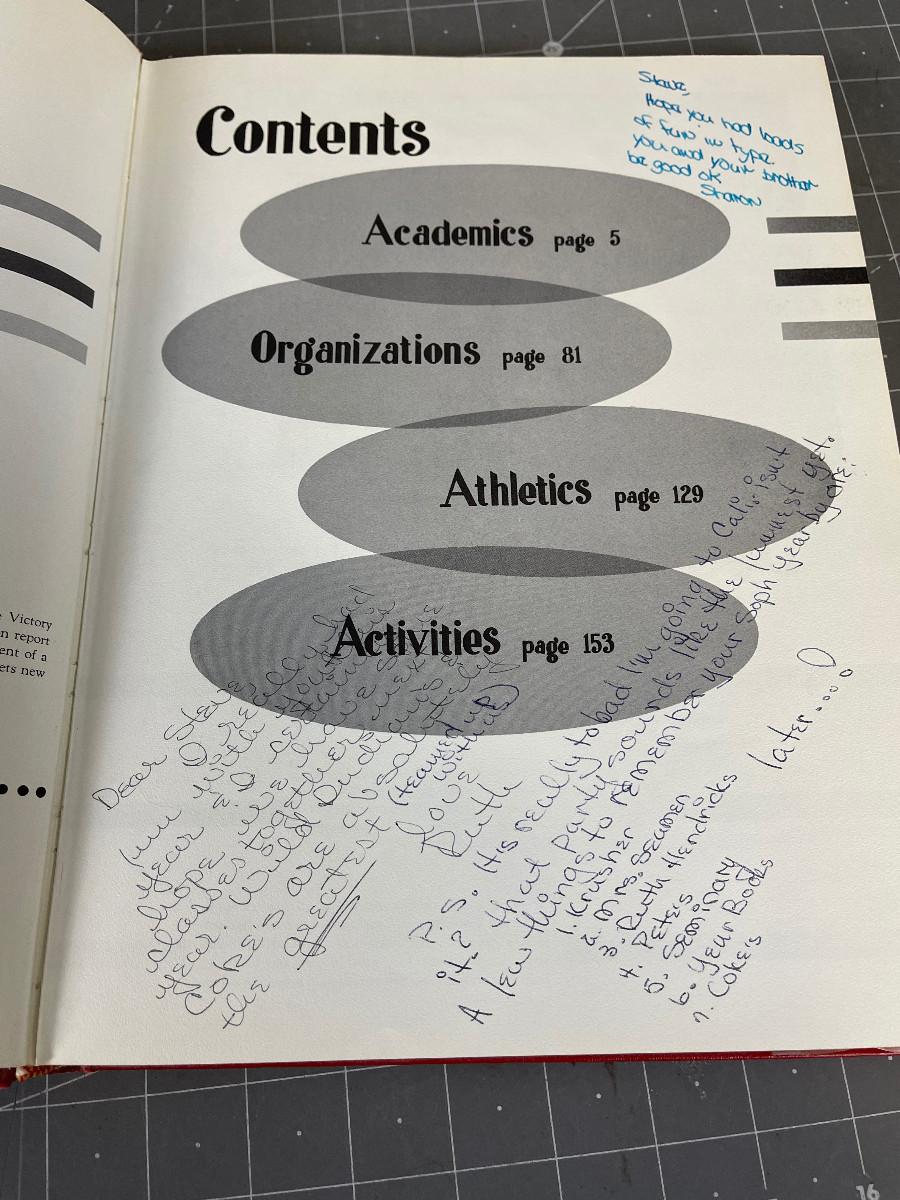 Contents
Academics page 5
Organizations page 81
Athletics page 129
Activities page 153
Steve,
Hope you had loads
of fun in type
you and your brother
be good ok
Sharon
Victory
n report
ent of a
ets new
Dear Steve
year
hope we have some
classes together next
year. Wild Dudley's &
Coke's are absolutely
the greatest (teamed up
with us)
Love
Ruth
P.S. Its really to bad I'm going to Cali. isn't
it? that Party sounds like the funnest yet.
A few things to remember your Soph year by are:
1. Krusher
2. Mrs. Seamen
3. Ruth Hendricks
4. Peters
5. Seminary
6. Year Books
7. Cokes
later....
16